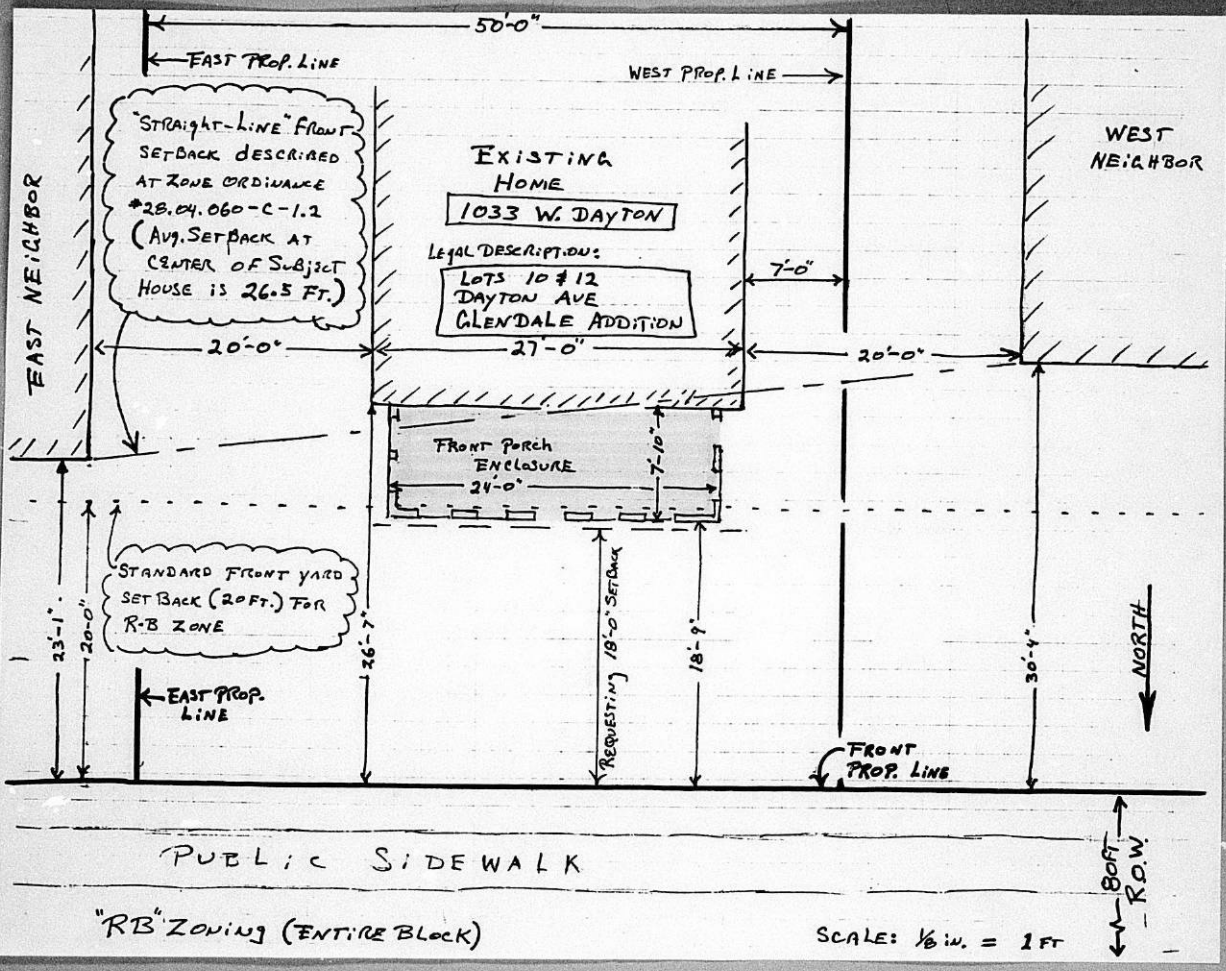 50'-0"
EAST PROP. LINE
WEST PROP. LINE
"STRAIGHT-LINE" FRONT
SETBACK DESCRIBED
AT ZONE ORDINANCE
#28.04.060-C-1.2
(AVG. SETBACK AT
CENTER OF SUBJECT
HOUSE IS 26.5 FT.)
EXISTING
HOME
1033 W. DAYTON
LEGAL DESCRIPTION:
LOTS 10 & 12
DAYTON AVE
GLENDALE ADDITION
WEST
NEIGHBOR
EAST NEIGHBOR
7'-0"
20'-0"
27'-0"
20'-0"
FRONT PORCH
ENCLOSURE
24'-0"
7'-10"
STANDARD FRONT YARD
SETBACK (20 FT.) FOR
R-B ZONE
23'-1"
20'-0"
26'-7"
REQUESTING 18'-0" SETBACK
18'-9"
30'-4"
NORTH
EAST PROP.
LINE
FRONT
PROP. LINE
PUBLIC SIDEWALK
80FT
R.O.W.
"RB" ZONING (ENTIRE BLOCK)
SCALE: 1/8 IN. = 1 FT